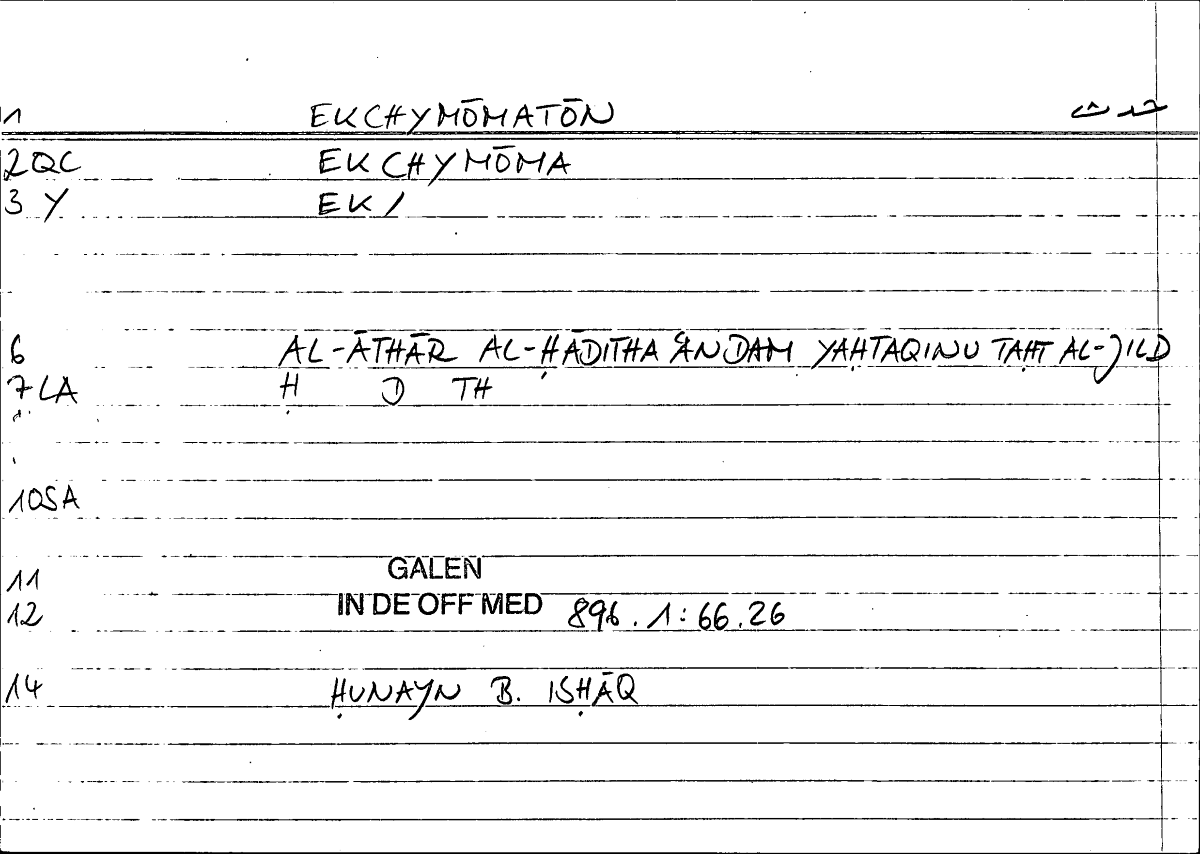 1 EKCHYMŌMATŌN حدث
2QC EKCHYMŌMA
3 Y EK/
6 AL-ĀTHĀR AL-ḤĀDITHA ʿAN DAM YAḤTAQINU TAḤT AL-JILD
7 LA Ḥ D TH
10SA
11 GALEN
12 IN DE OFF MED 896.1:66.26
14 ḤUNAYN B. ISḤĀQ